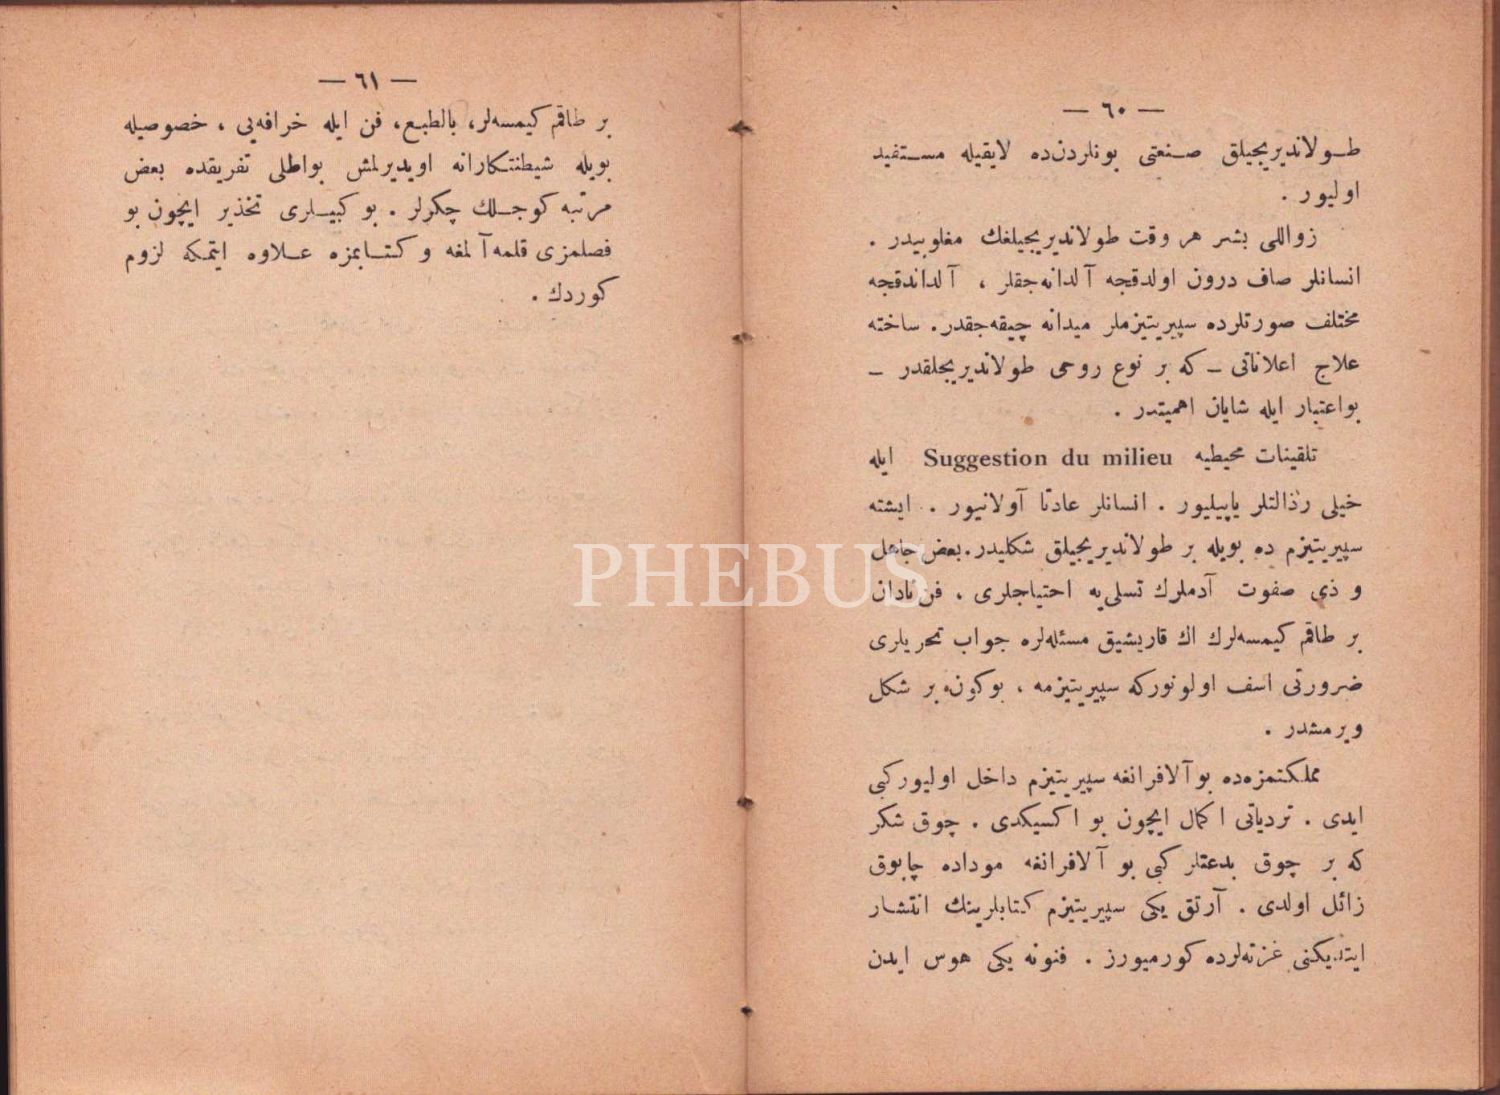 — ٦٠ —
طولاندیریجیلق صنعتی بونلردن‌ده لایقیله مستفید
اولیور .
زواللی بشر هر وقت طولاندیریجیلغك مغلوبیدر .
انسانلر صاف درون اولدقجه آلدانه‌جقلر ، آلداندقجه
مختلف صورتلرده سپیریتیزملر میدانه چیقه‌جقدر. ساخته
علاج اعلاناتی ــ كه بر نوع روحی طولاندیریجلقدر ــ
بواعتبار ایله شایان اهمیتدر .
تلقینات محیطیه Suggestion du milieu ایله
خیلی رذالتلر یاپیلیور . انسانلر عادتا آولانیور . ایشته
سپیریتیزم ده بویله بر طولاندیریجیلق شكلیدر. بعض جاهل
و ذی صفوت آدملرك تسلی‌یه احتیاجلری ، فن‌نادان
بر طاقم كیمسه‌لرك اك قاریشیق مسئله‌لره جواب تحریلری
ضرورتی اسف اولونوركه سپیریتیزمه ، بوكونه بر شكل
ویرمشدر .
مملكتمزه‌ده بوآلافرانغه سپیریتیزم داخل اولیوركبی
ایدی . تردیاتی اكمال ایچون بو اكسیكدی . چوق شكر
كه بر چوق بدعتلر كبی بو آلافرانغه موداده چابوق
زائل اولدی . آرتق یكی سپیریتیزم كتابلرینك انتشار
ایتدیكنی غزته‌لرده كورمیورز . فنونه یكی هوس ایدن
— ٦١ —
بر طاقم كیمسه‌لر، بالطبع، فن ایله خرافه‌یی ، خصوصیله
بویله شیطنتكارانه اویدیرلمش بواطلی تفریقده بعض
مرتبه كوجلك چكرلر . بو كبیلری تخذیر ایچون بو
فصلمزی قلمه‌آلمغه و كتابمزه علاوه ایتمكه لزوم
كوردك .
PHEBUS